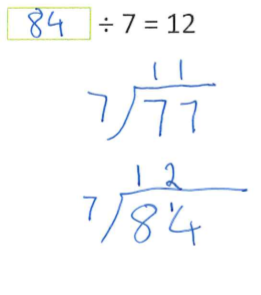 84 ÷ 7 = 12
11
7)77
12
7)8¹4